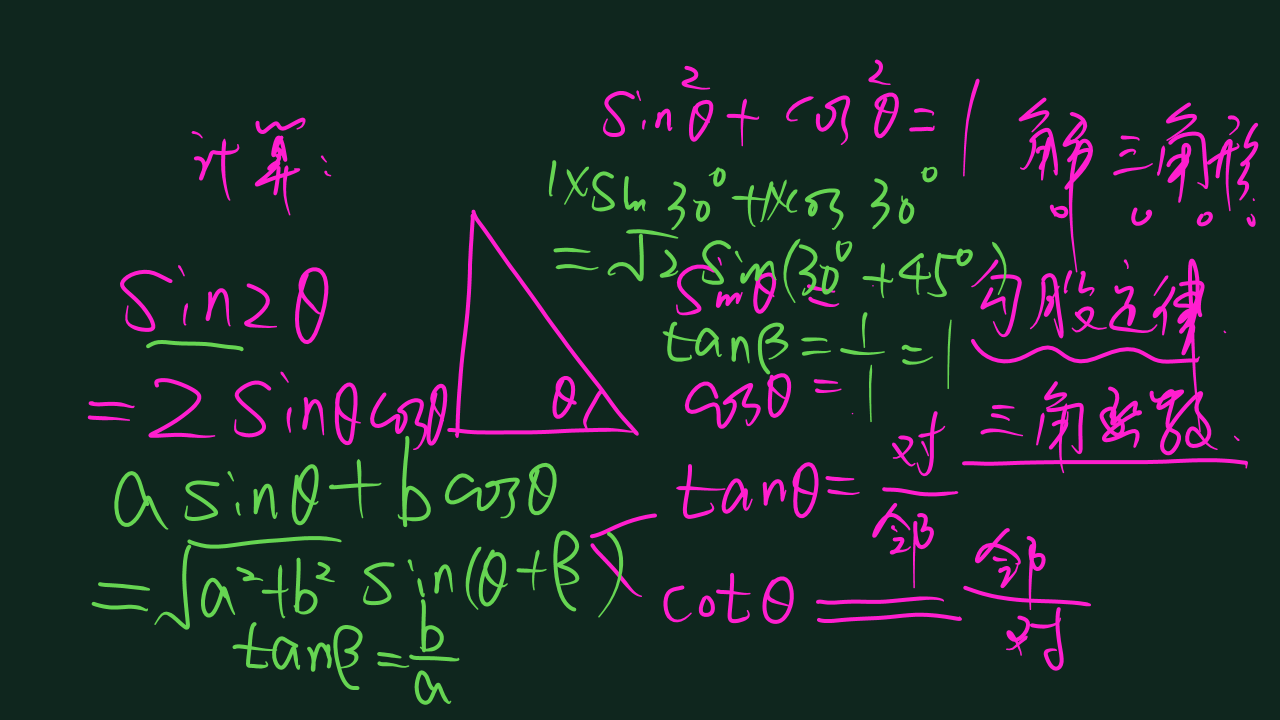 计算:
sin2θ
=2sinθcosθ
θ
asinθ+bcosθ
=√(a²+b²) sin(θ+β)
tanβ=b/a
sin²θ+cos²θ=1
1×sin30°+1×cos30°
=√2 sin(30°+45°)
sinθ=
tanβ=1/1=1
cosθ=
tanθ=对/邻
cotθ=邻/对
解三角形.
勾股定律.
三角函数.